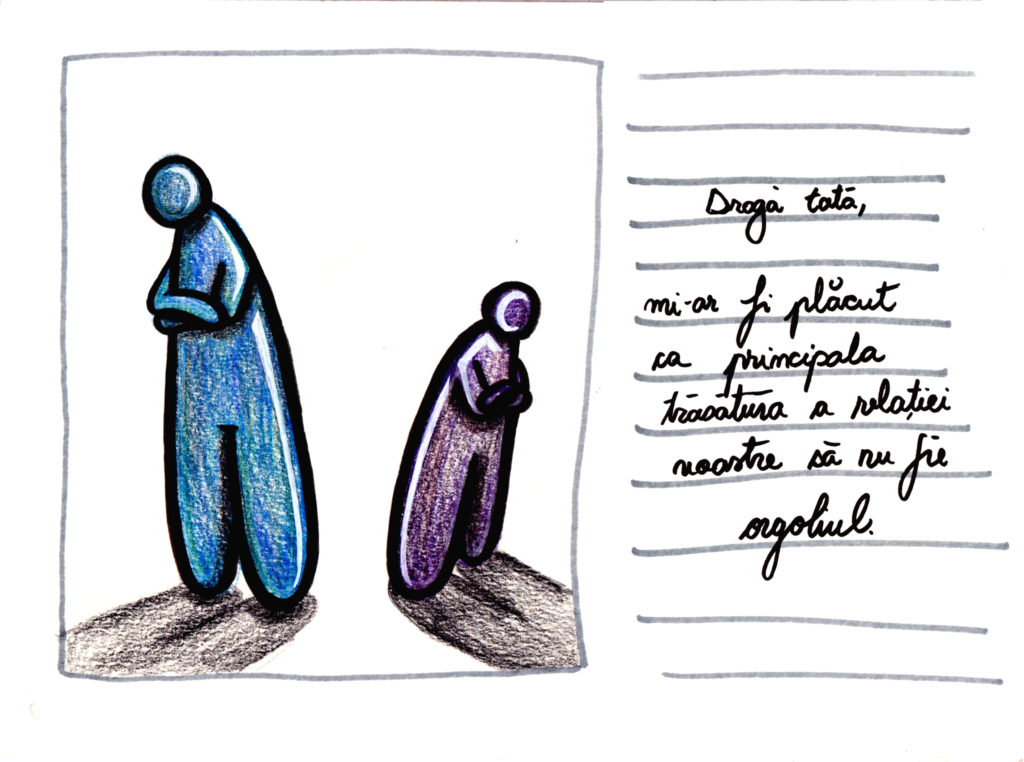 Dragă tată,
mi-ar fi plăcut
ca principala
trăsătura a relației
noastre să nu fie
orgoliul.